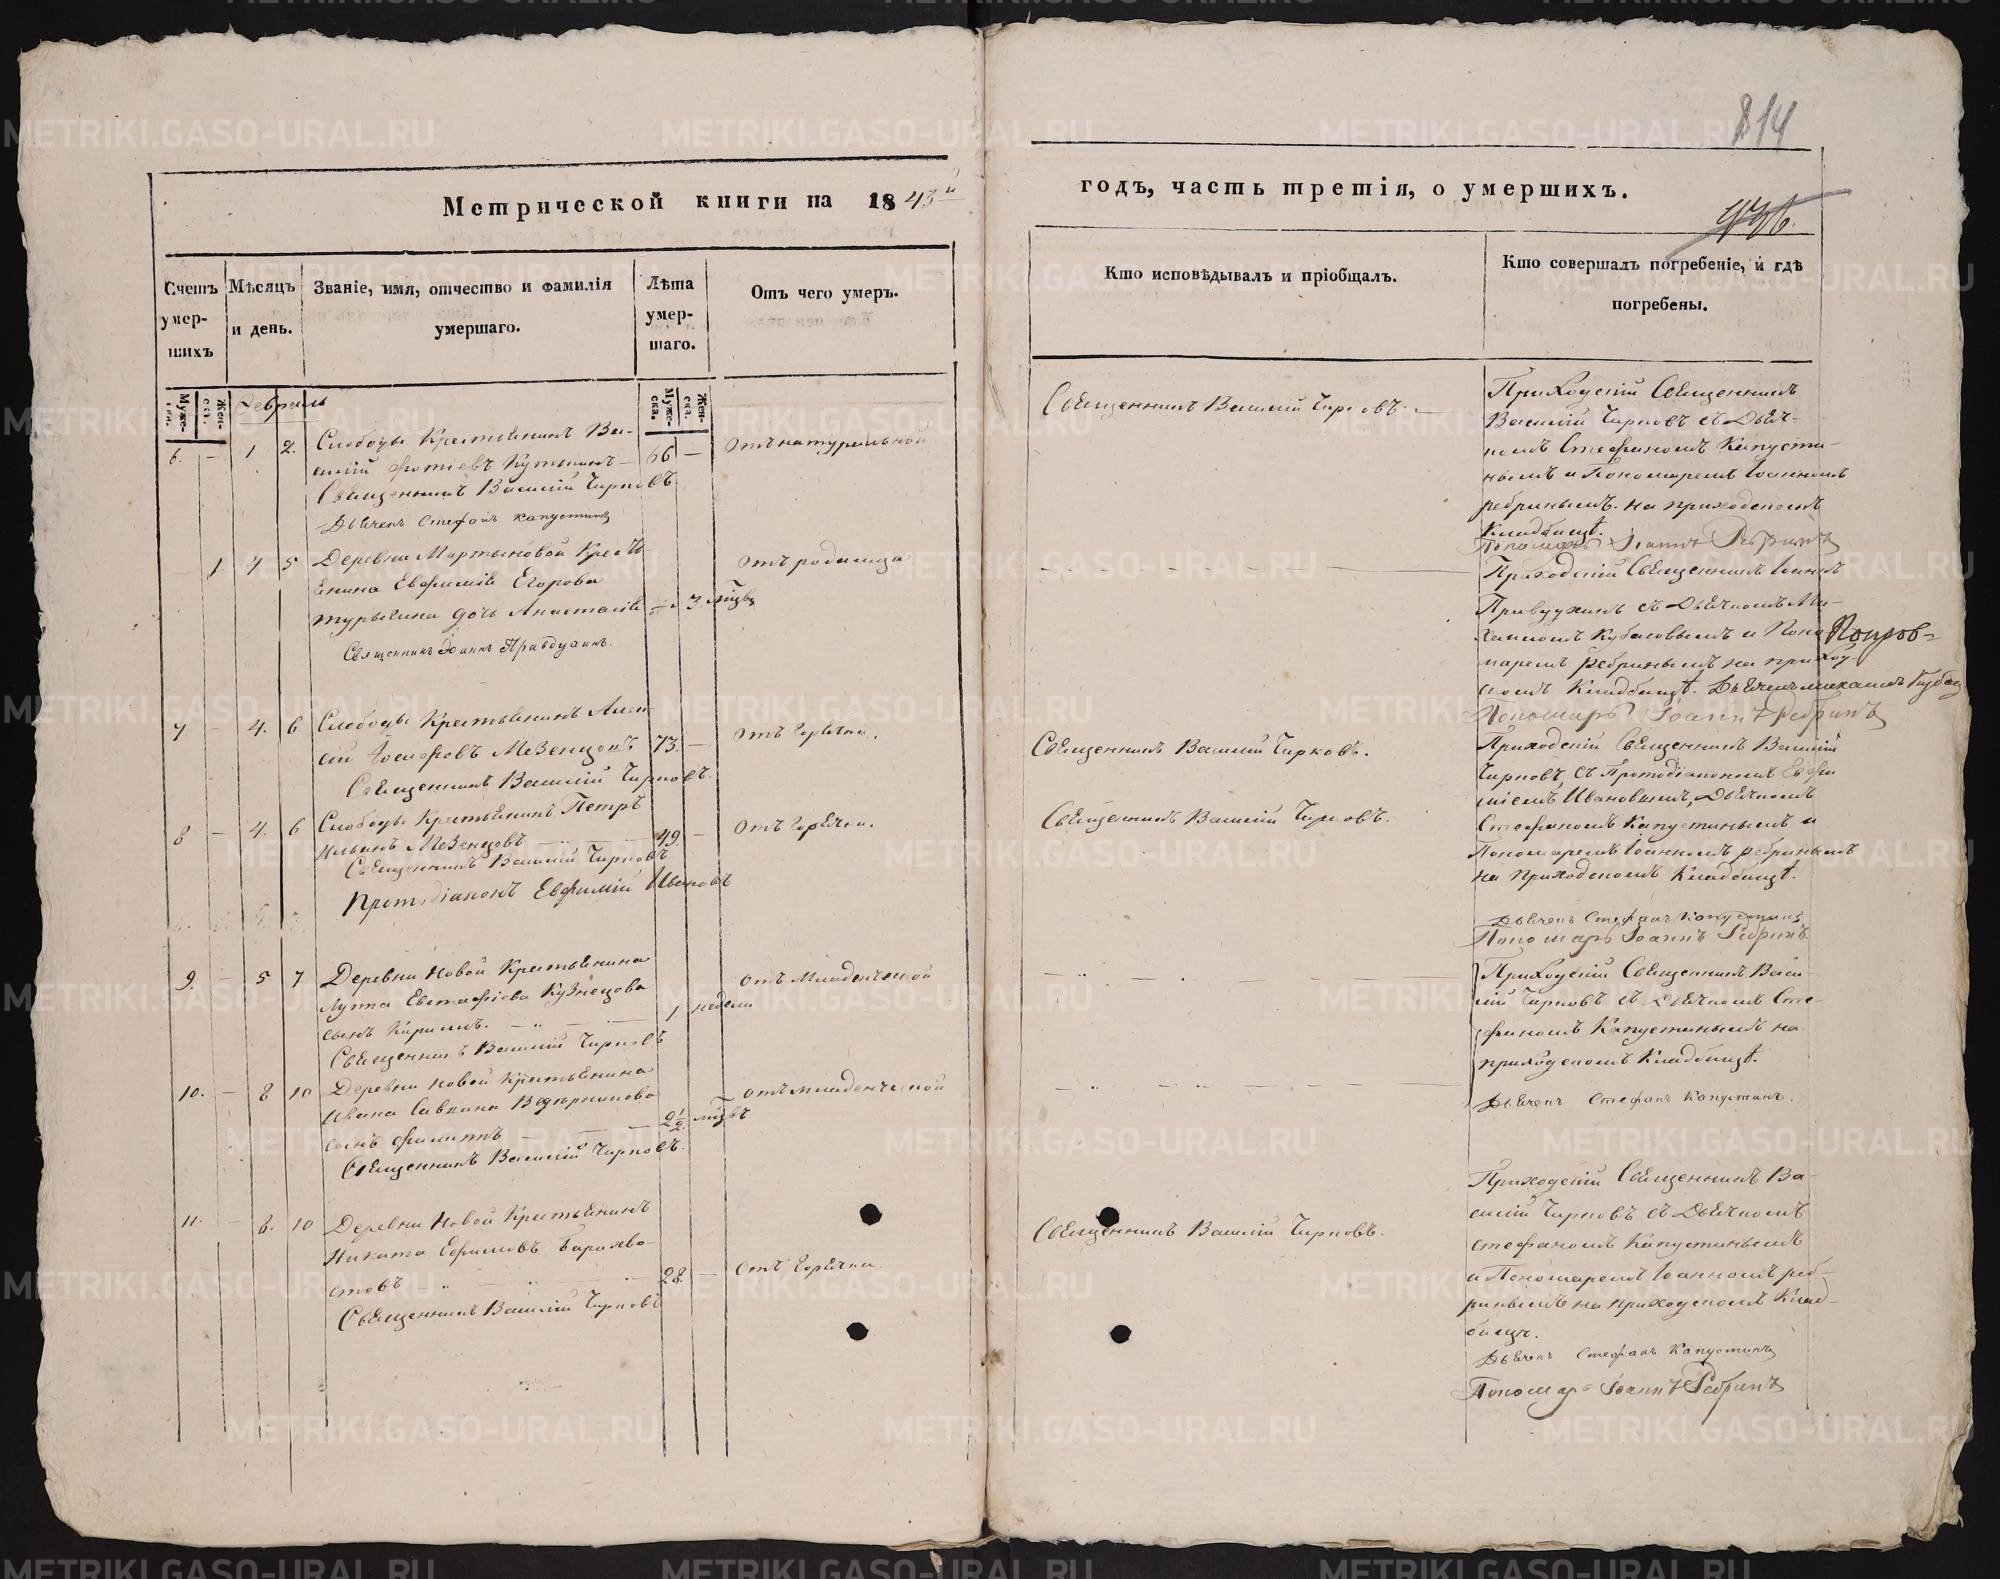 814
Метрической книги на 1843й
годъ, часть третія, о умершихъ.
Счетъ умер-шихъ
Мѣсяцъ и день.
Званіе, имя, отчество и фамилія умершаго.
Лѣта умер-шаго.
Отъ чего умеръ.
Кто исповѣдывалъ и пріобщалъ.
Кто совершалъ погребеніе, и гдѣ погребены.
Муже-ска.
Жен-ска.
Муже-ска.
Жен-ска.
Февраль
6. — 1 2. Слободы Крестьянинъ Ва-
силій Фотіевъ — 66 — Отъ натуральной
Священникъ Василій Чирковъ
Дьячекъ Стефанъ Капустинъ
Священникъ Василій Чирковъ. —
Приходскій Священникъ
Василій Чирковъ съ Дьяч-
комъ Стефаномъ Капусти-
нымъ и Пономаремъ Іоанномъ
Ребринымъ на приходскомъ
Кладбищѣ.
Пономарь Іоаннъ Ребринъ
— 1. 4 5 Деревни Мартыновой Кресть-
янина Евфимія Егорова
дочь Анастасія 3 мѣсяц.
Священникъ Іоаннъ Правдухинъ.
отъ родимца
Приходскій Священникъ Іоаннъ
Правдухинъ съ Дьячкомъ Ми-
хаиломъ Кубасовымъ и Поно
маремъ Ребринымъ на приход-
скомъ Кладбищѣ. Дьячекъ Михаилъ
Пономарь Іоаннъ Ребринъ
7 — 4. 6 Слободы Крестьянинъ Алек
сій Іосифовъ Мезенцовъ 73. — отъ Горячки.
Священникъ Василій Чирковъ.
Священникъ Василій Чирковъ.
Приходскій Священникъ Василій
Чирковъ, съ Протодіакономъ Евфи
міемъ Ивановымъ, Дьячкомъ
Стефаномъ Капустинымъ и
Пономаремъ Іоанномъ Ребринымъ
на приходскомъ Кладбищѣ.
8 — 4. 6 Слободы Крестьянинъ Петръ
Ильинъ Мезенцовъ — 49. — отъ Горячки.
Священникъ Василій Чирковъ
Протодіаконъ Евфимій Ивановъ
Священникъ Василій Чирковъ.
Дьячекъ Стефанъ Капустинъ
Пономарь Іоаннъ Ребринъ.
9. — 5 7 Деревни Новой Крестьянина
Евстафіева Кузнецова
сынъ Кириллъ. — 1 недели
Священникъ Василій Чирковъ
отъ Младенческой
Приходскій Священникъ Васи
лій Чирковъ съ Дьячкомъ Сте-
фаномъ Капустинымъ на
приходскомъ Кладбищѣ.
10. — 8 10 Деревни Новой Крестьянина
Ивана Савина
сынъ Филиппъ — 2½ мѣсяц.
Священникъ Василій Чирковъ.
отъ младенческой
Дьячекъ Стефанъ Капустинъ.
11. — 8. 10 Деревни Новой Крестьянинъ
Никита Ефимовъ Барахво-
стовъ — 28. — отъ Горячки.
Священникъ Василій Чирковъ
Священникъ Василій Чирковъ.
Приходскій Священникъ Ва-
силій Чирковъ съ Дьячкомъ
Стефаномъ Капустинымъ
и Пономаремъ Іоанномъ Реб-
ринымъ на приходскомъ Клад-
бищѣ.
Дьячекъ Стефанъ Капустинъ
Пономарь Іоаннъ Ребринъ
METRIKI.GASO-URAL.RU